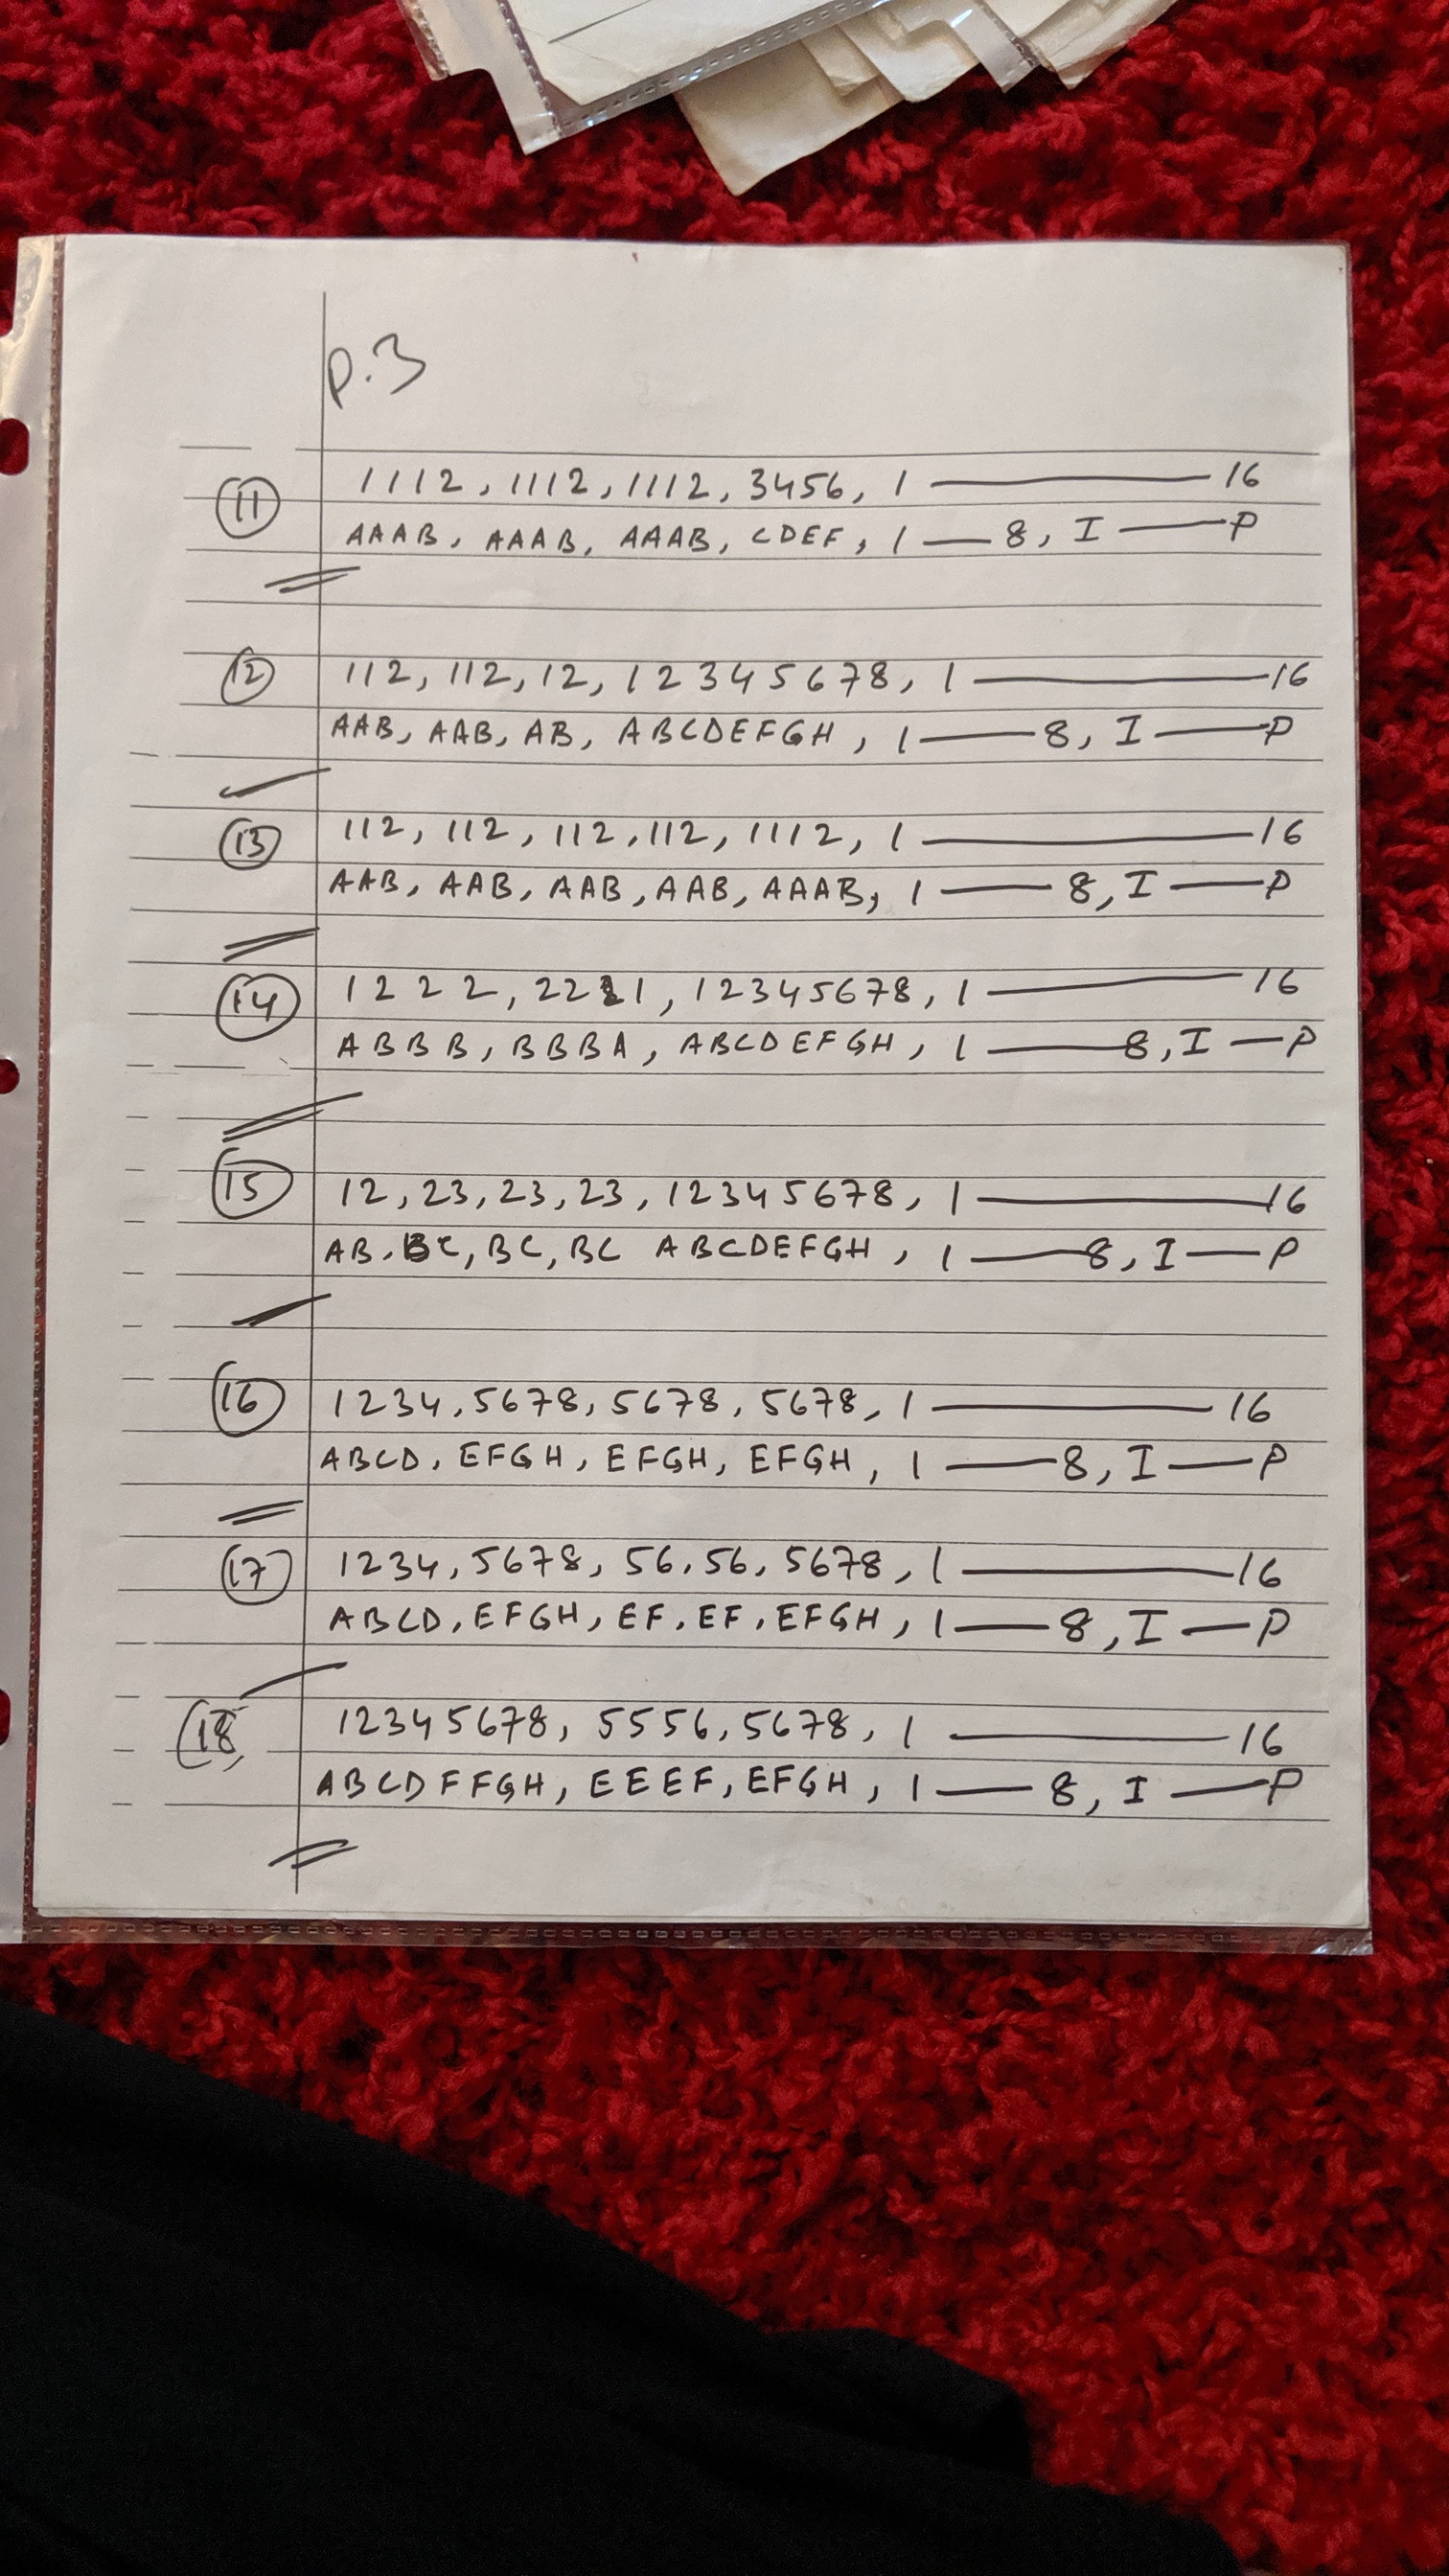 p.3
11 1112, 1112, 1112, 3456, 1 — 16
AAAB, AAAB, AAAB, CDEF, 1 — 8, I — P
12 112, 112, 12, 12345678, 1 — 16
AAB, AAB, AB, ABCDEFGH, 1 — 8, I — P
13 112, 112, 112, 112, 1112, 1 — 16
AAB, AAB, AAB, AAB, AAAB, 1 — 8, I — P
14 1222, 2221, 12345678, 1 — 16
ABBB, BBBA, ABCDEFGH, 1 — 8, I — P
15 12, 23, 23, 23, 12345678, 1 — 16
AB, BC, BC, BC ABCDEFGH, 1 — 8, I — P
16 1234, 5678, 5678, 5678, 1 — 16
ABCD, EFGH, EFGH, EFGH, 1 — 8, I — P
17 1234, 5678, 56, 56, 5678, 1 — 16
ABCD, EFGH, EF, EF, EFGH, 1 — 8, I — P
18 12345678, 5556, 5678, 1 — 16
ABCDFFGH, EEEF, EFGH, 1 — 8, I — P